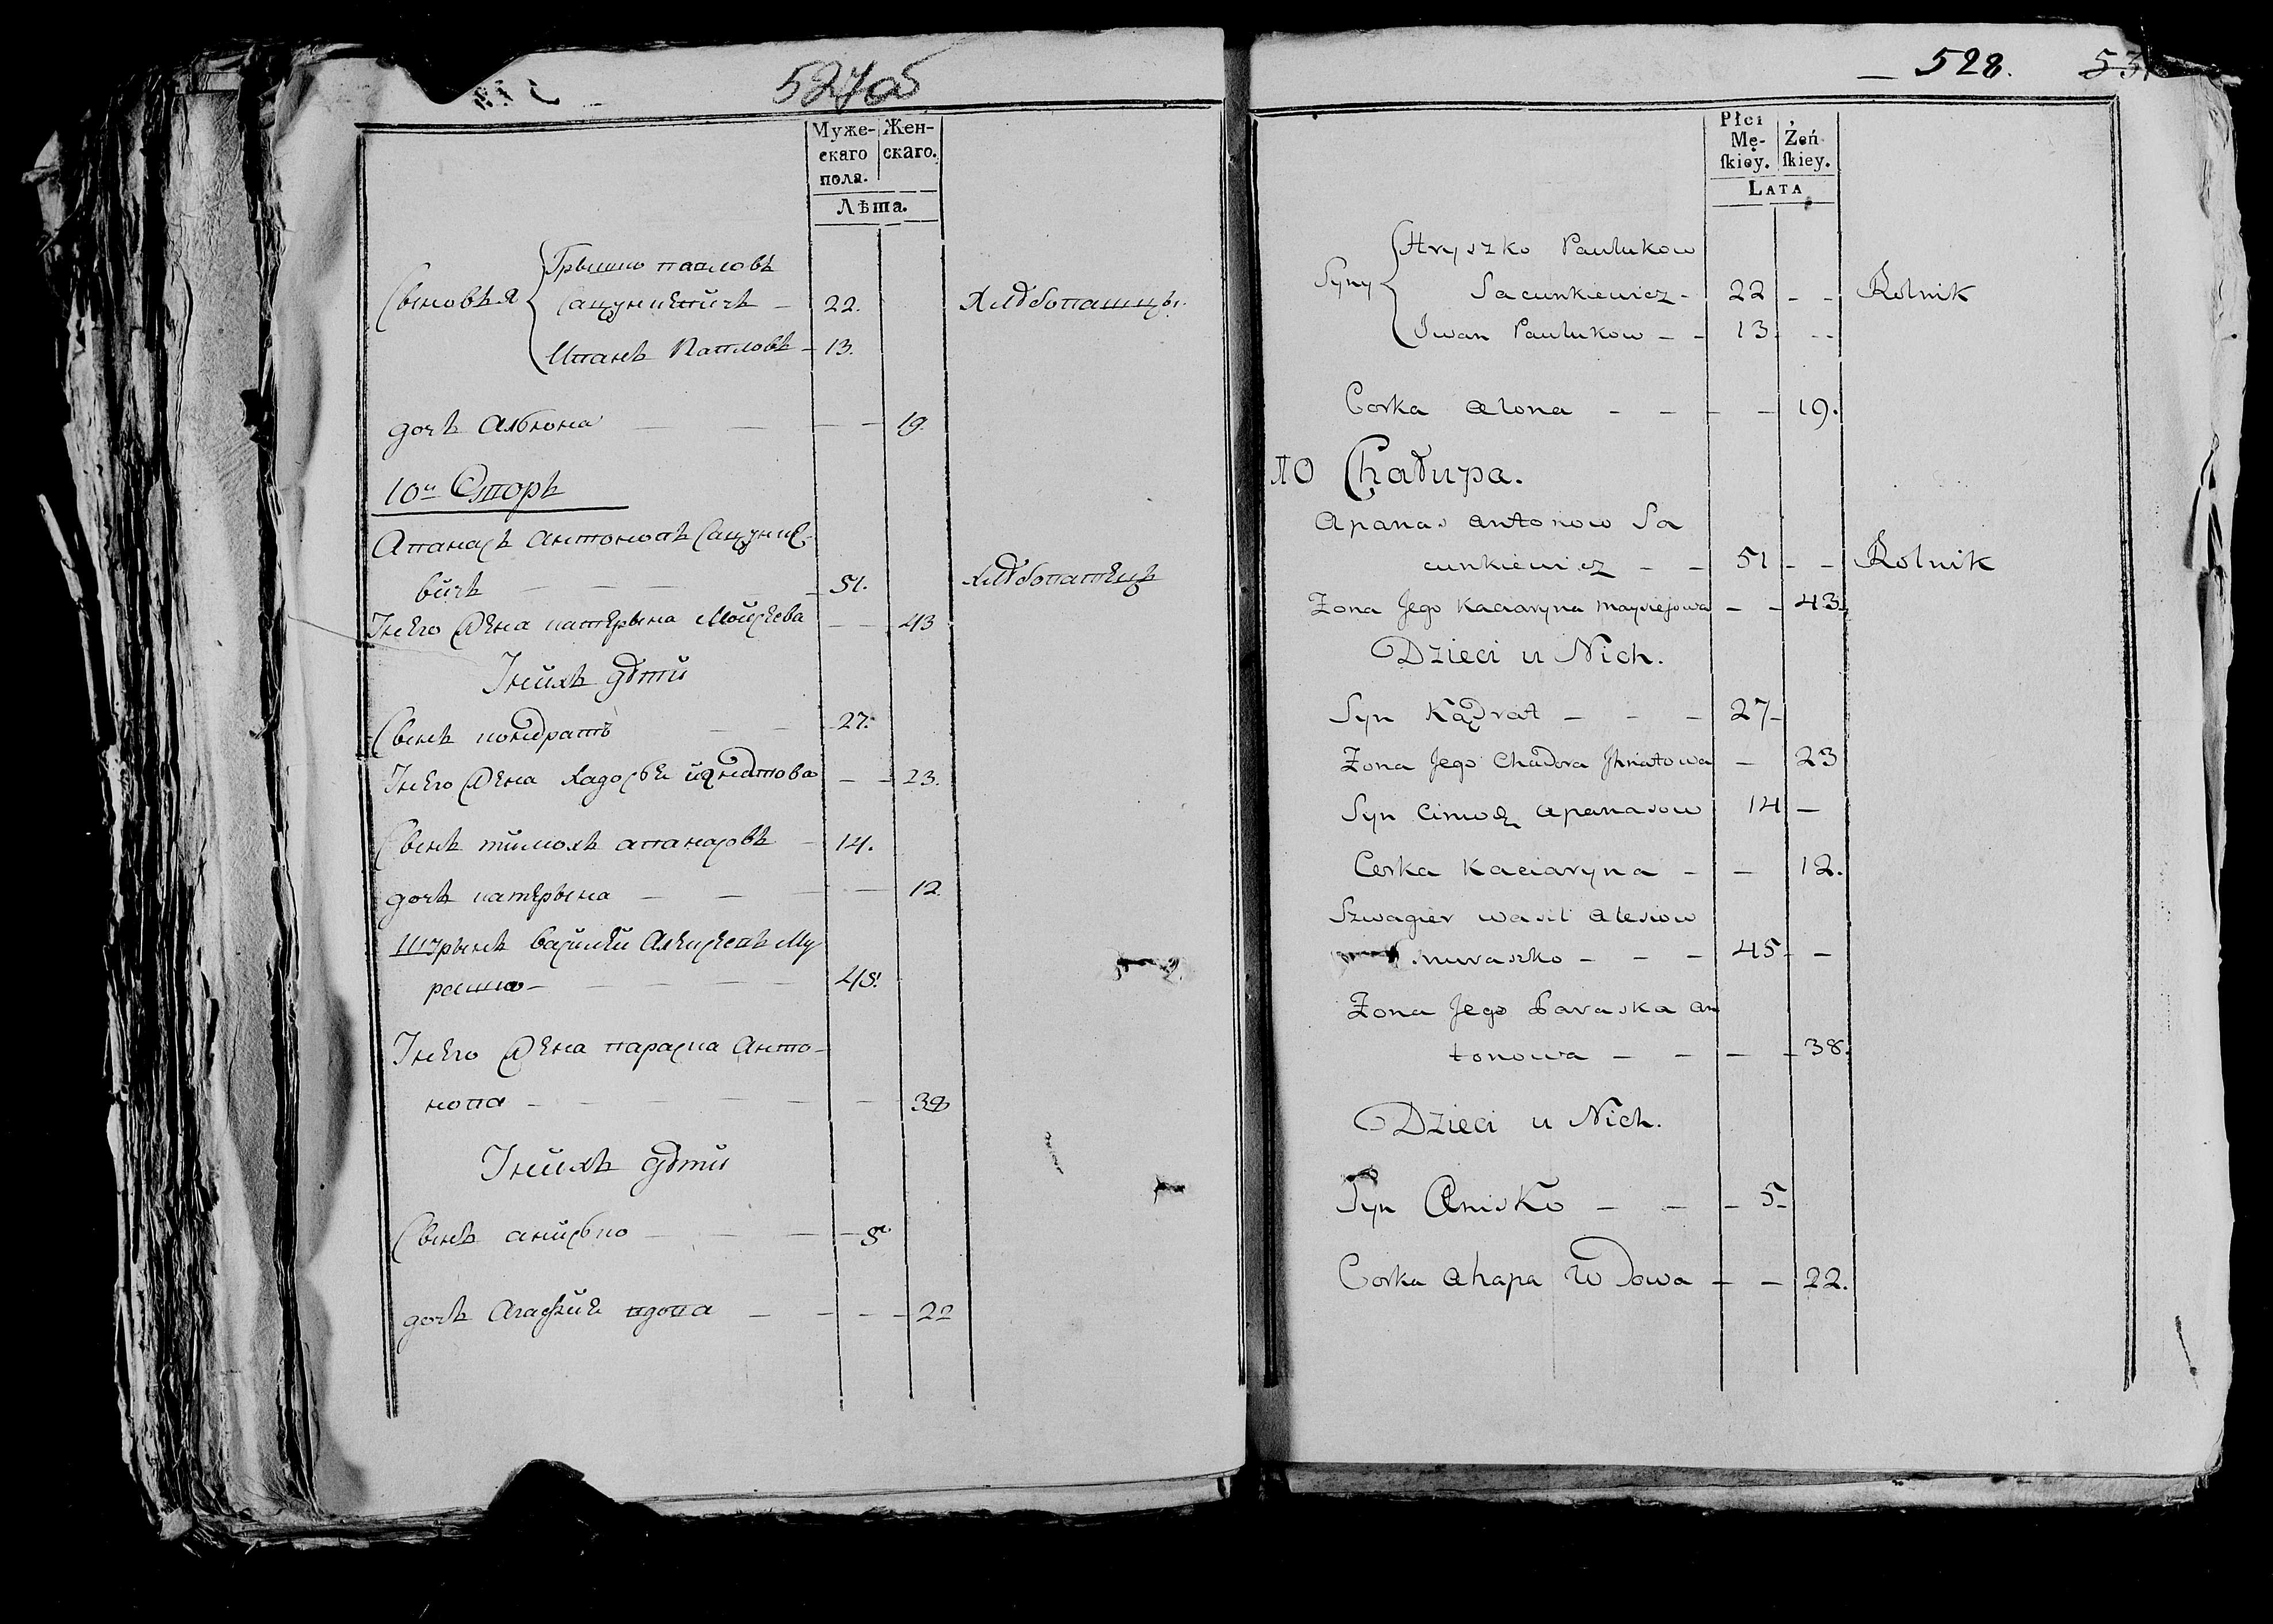 527об
Муже-
скаго
пола.
Жен-
скаго.
Лѣта.
Сыновья
Грышко павловъ
Сацункевичъ — 22. Хлѣбопашцы.
Иванъ Павловъ — 13.
дочь Алюона — — — — 19.
10й Дворъ
Апанасъ Антоновъ Сацунке-
вичъ — — — 51. Хлѣбопашецъ
У него Жена катерына Мойсеева — — 43
У нихъ дѣти
Сынъ кондратъ — — 27.
У него Жена Хадосья игнатова — — 23.
Сынъ тимохъ апанасовъ — 14.
дочь катерына — — — — 12.
Шурынъ василей Алексеевъ Му
рашко — — — — 45.
У него Жена параска Анто-
нова — — — — — — 38
У нихъ дѣти
Сынъ анисько — — — — 5.
дочь Агафия вдова — — — — 22
— 528. 53
Płci
Mę-
ſkiey.
Żeń
ſkiey.
LATA
Syny
Hryszko Paulukow
Sacunkiewicz - 22 - - Rolnik
Jwan Paulukow - - 13 - -
Corka Alona - - - - 19.
10 Chałupa.
Apanas Antonow Sa
cunkiewicz - - 51 - - Rolnik
Żona Jego Kaciaryna maysiejowa - - 43
Dzieci u Nich.
Syn Kądrat - - - 27 -
Żona Jego Chadora Jhnatowa - 23
Syn Cimoch Apanasow 14 -
Corka Kaciaryna - - 12.
Szwagier wasil Alesiow
muraszko - - - 45 - -
Żona Jego Paraska An
tonowa - - - - 38.
Dzieci u Nich.
Syn Anisko - - - 5 -
Corka Ahapa Wdowa - - 22.